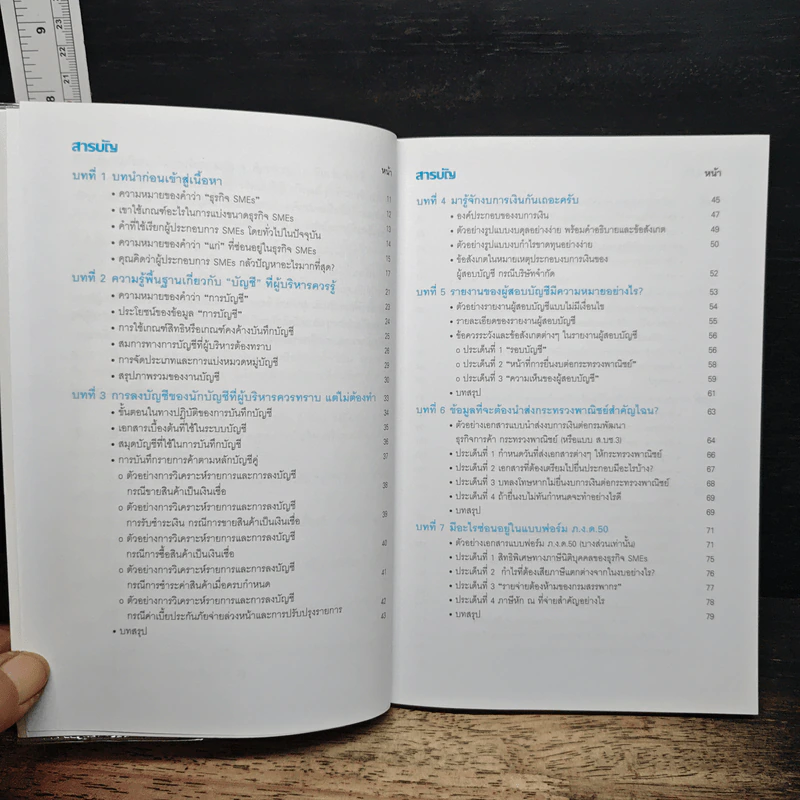 9
8
23
22
21
สารบัญ
หน้า
บทที่ 1 บทนำก่อนเข้าสู่เนื้อหา
• ความหมายของคำว่า "ธุรกิจ SMEs" 11
• เขาใช้เกณฑ์อะไรในการแบ่งขนาดธุรกิจ SMEs 12
• คำที่ใช้เรียกผู้ประกอบการ SMEs โดยทั่วไปในปัจจุบัน 13
• ความหมายของคำว่า "แก่" ที่ซ่อนอยู่ในธุรกิจ SMEs 14
• คุณคิดว่าผู้ประกอบการ SMEs กลัวปัญหาอะไรมากที่สุด?
บทที่ 2 ความรู้พื้นฐานเกี่ยวกับ "บัญชี" ที่ผู้บริหารควรรู้
• ความหมายของคำว่า "การบัญชี"
• ประโยชน์ของข้อมูล "การบัญชี"
• การใช้เกณฑ์สิทธิหรือเกณฑ์คงค้างบันทึกบัญชี
• สมการทางการบัญชีที่ผู้บริหารต้องทราบ
• การจัดประเภทและการแบ่งหมวดหมู่บัญชี
• สรุปภาพรวมของงานบัญชี 30
บทที่ 3 การลงบัญชีของนักบัญชีที่ผู้บริหารควรทราบ แต่ไม่ต้องทำ 33
• ขั้นตอนในทางปฏิบัติของการบันทึกบัญชี 34
• เอกสารเบื้องต้นที่ใช้ในระบบบัญชี 35
• สมุดบัญชีที่ใช้ในการบันทึกบัญชี 36
• การบันทึกรายการค้าตามหลักบัญชีคู่ 37
o ตัวอย่างการวิเคราะห์รายการและการลงบัญชี
กรณีขายสินค้าเป็นเงินเชื่อ 38
o ตัวอย่างการวิเคราะห์รายการและการลงบัญชี
การรับชำระเงิน กรณีการขายสินค้าเป็นเงินเชื่อ 39
o ตัวอย่างการวิเคราะห์รายการและการลงบัญชี
กรณีการซื้อสินค้าเป็นเงินเชื่อ 40
o ตัวอย่างการวิเคราะห์รายการและการลงบัญชี
กรณีการชำระค่าสินค้าเมื่อครบกำหนด 41
o ตัวอย่างการวิเคราะห์รายการและการลงบัญชี
กรณีค่าเบี้ยประกันภัยจ่ายล่วงหน้าและการปรับปรุงรายการ 42
• บทสรุป 43
สารบัญ
หน้า
บทที่ 4 มารู้จักงบการเงินกันเถอะครับ 45
• องค์ประกอบของงบการเงิน 47
• ตัวอย่างรูปแบบงบดุลอย่างง่าย พร้อมคำอธิบายและข้อสังเกต 49
• ตัวอย่างรูปแบบงบกำไรขาดทุนอย่างง่าย 50
• ข้อสังเกตในหมายเหตุประกอบการเงินของ
ผู้สอบบัญชี กรณีบริษัทจำกัด 52
บทที่ 5 รายงานของผู้สอบบัญชีมีความหมายอย่างไร? 53
• ตัวอย่างรายงานผู้สอบบัญชีแบบไม่มีเงื่อนไข 54
• รายละเอียดของรายงานผู้สอบบัญชี 55
• ข้อควรระวังและข้อสังเกตต่างๆ ในรายงานผู้สอบบัญชี 56
o ประเด็นที่ 1 "รอบบัญชี" 56
o ประเด็นที่ 2 "หน้าที่การยื่นงบต่อกระทรวงพาณิชย์" 58
o ประเด็นที่ 3 "ความเห็นของผู้สอบบัญชี" 59
• บทสรุป 61
บทที่ 6 ข้อมูลที่จะต้องนำส่งกระทรวงพาณิชย์สำคัญไฉน? 63
• ตัวอย่างเอกสารแบบนำส่งงบการเงินต่อกรมพัฒนา
ธุรกิจการค้า กระทรวงพาณิชย์ (หรือแบบ ส.บช.3) 64
• ประเด็นที่ 1 กำหนดวันที่ส่งเอกสารต่างๆ ให้กระทรวงพาณิชย์ 66
• ประเด็นที่ 2 เอกสารที่ต้องเตรียมไปยื่นประกอบมีอะไรบ้าง? 67
• ประเด็นที่ 3 บทลงโทษหากไม่ยื่นงบการเงินต่อกระทรวงพาณิชย์ 68
• ประเด็นที่ 4 ถ้ายื่นงบไม่ทันกำหนดจะทำอย่างไรดี 69
• บทสรุป 69
บทที่ 7 มีอะไรซ่อนอยู่ในแบบฟอร์ม ภ.ง.ด.50 71
• ตัวอย่างเอกสารแบบฟอร์ม ภ.ง.ด.50 (บางส่วนเท่านั้น) 71
• ประเด็นที่ 1 สิทธิพิเศษทางภาษีนิติบุคคลของธุรกิจ SMEs 75
• ประเด็นที่ 2 กำไรที่ต้องเสียภาษีแตกต่างจากในงบอย่างไร? 76
• ประเด็นที่ 3 "รายจ่ายต้องห้ามของกรมสรรพากร" 77
• ประเด็นที่ 4 ภาษีหัก ณ ที่จ่ายสำคัญอย่างไร 78
• บทสรุป 79